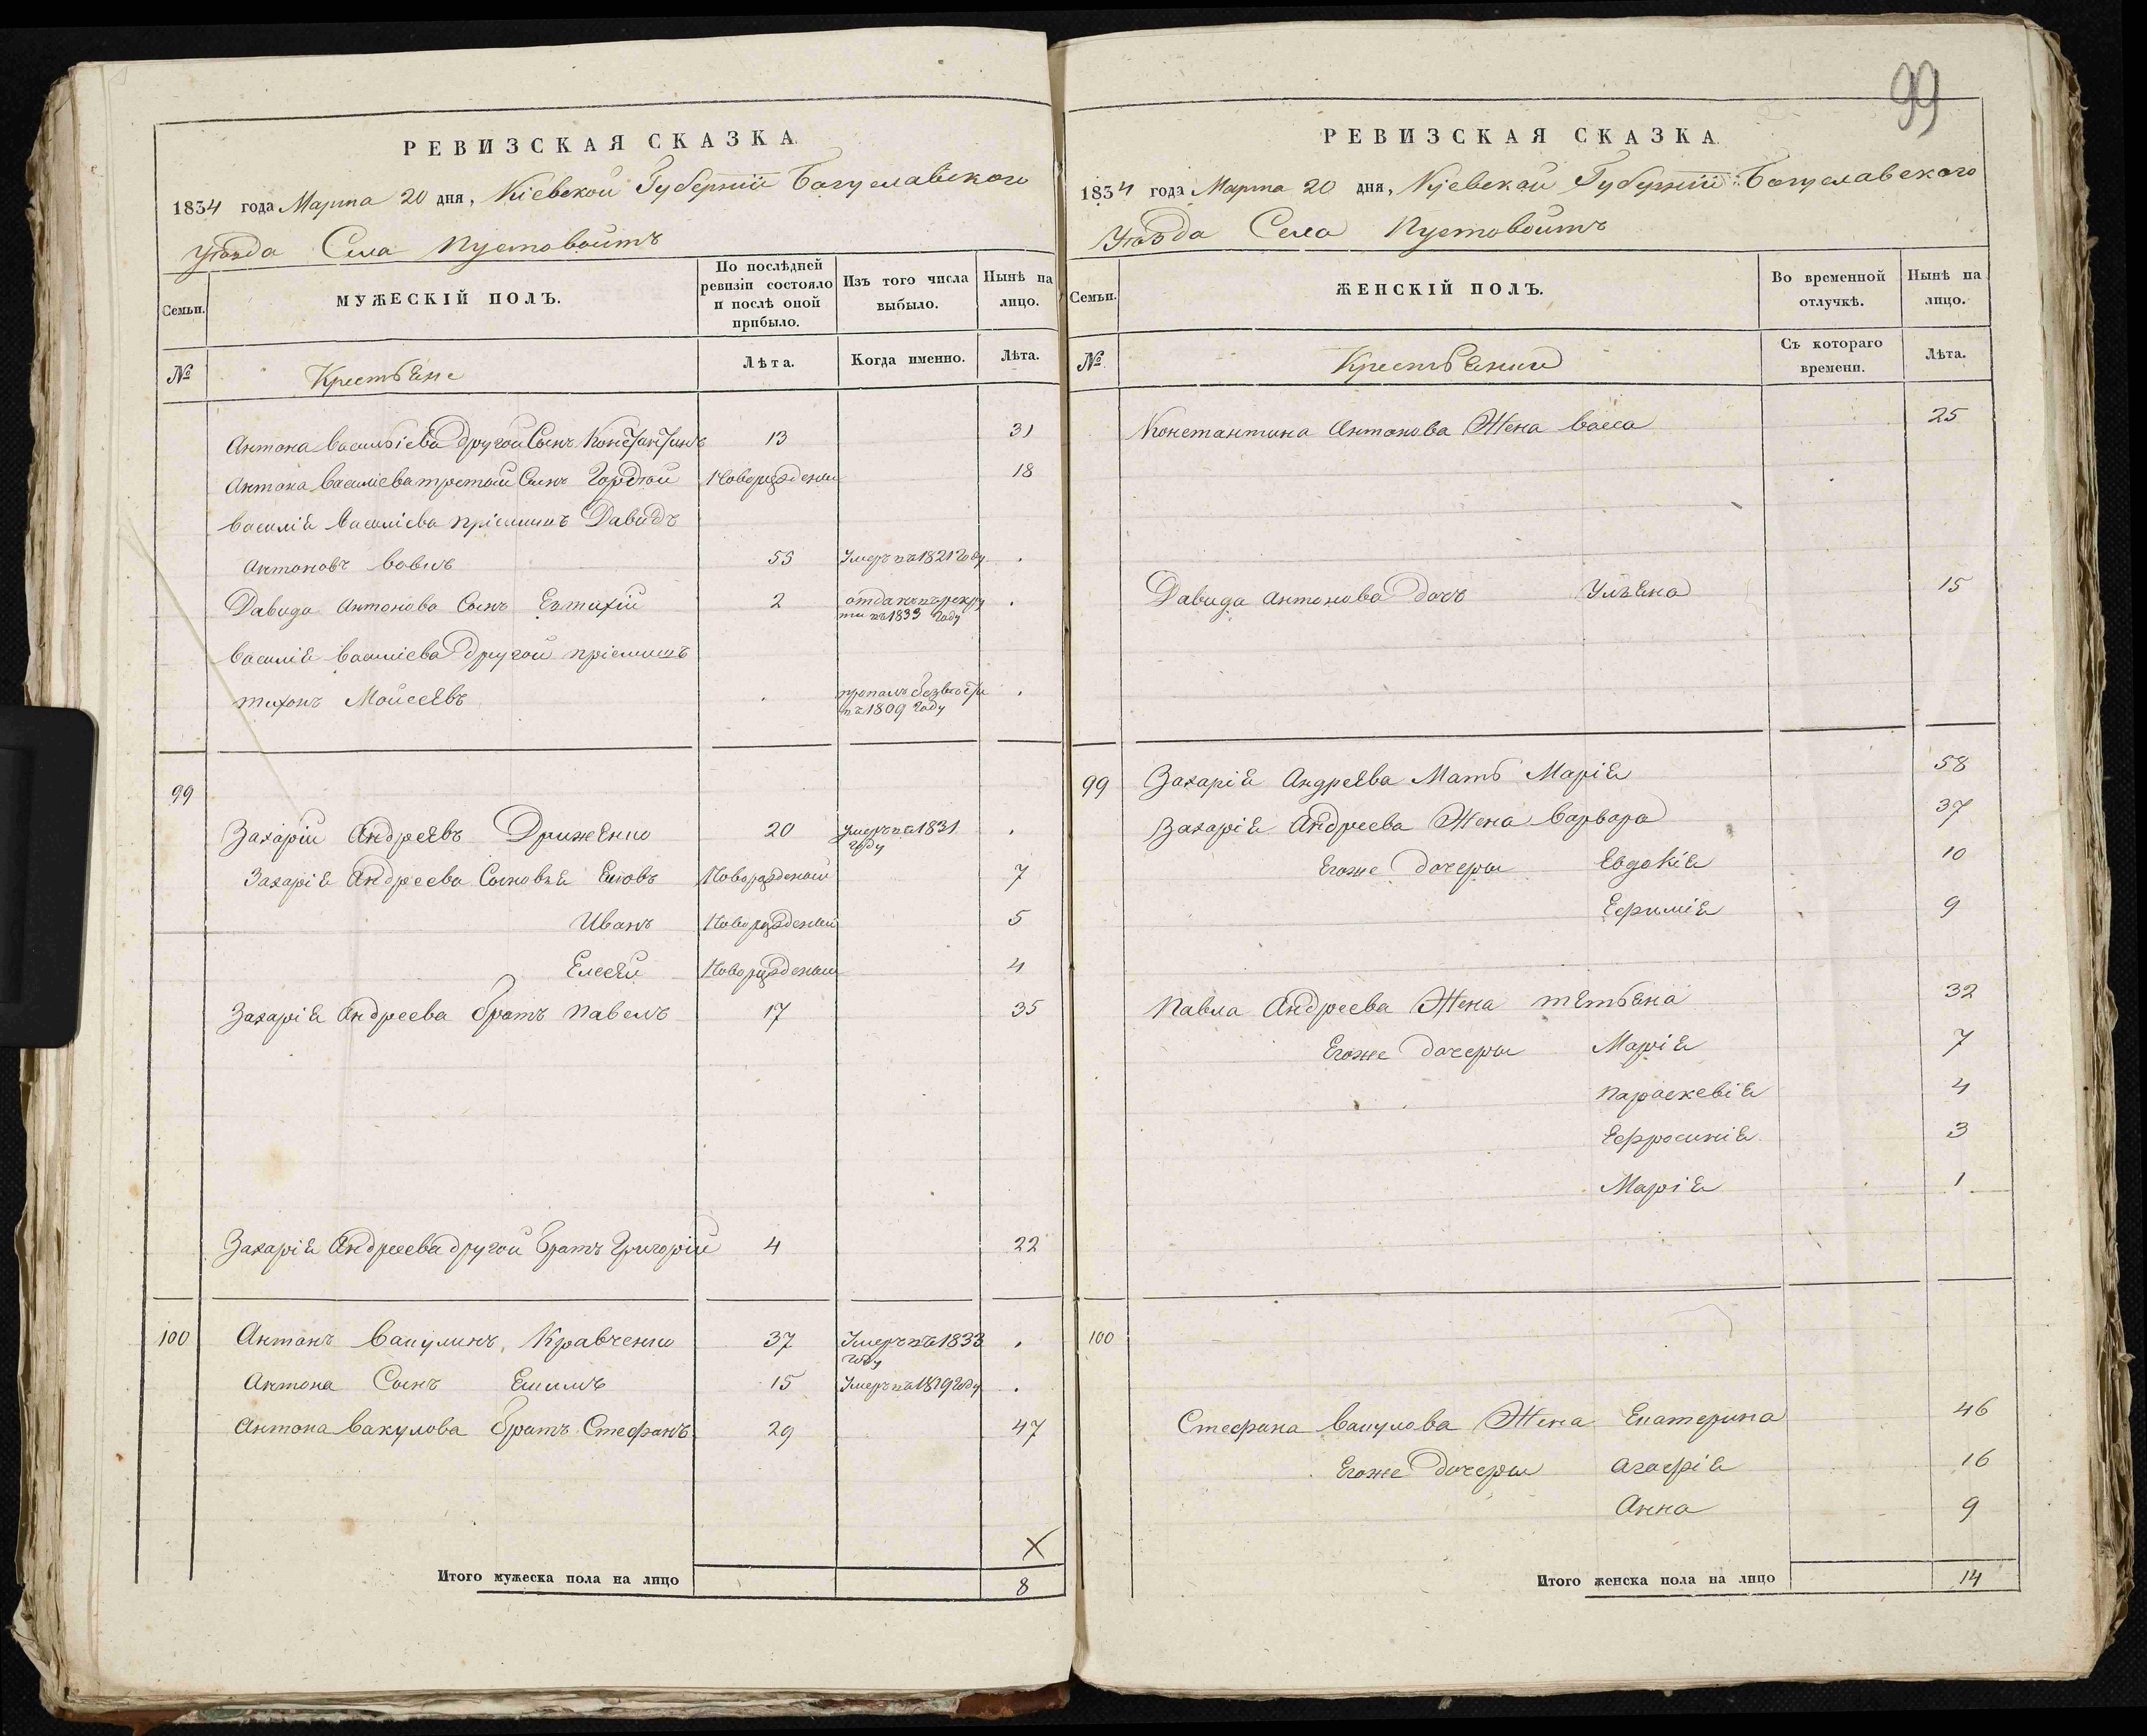 99
РЕВИЗСКАЯ СКАЗКА.
1834 года Марта 20 дня, Кіевской Губерніи Богуславского
уѣзда Села Пустовойтъ
Семьи.
МУЖЕСКІЙ ПОЛЪ.
По послѣдней ревизіи состояло и послѣ оной прибыло.
Изъ того числа выбыло.
Нынѣ на лицо.
№
Крестьяне
Лѣта.
Когда именно.
Лѣта.
Антона Васильіева другой Сынъ Константинъ 13 31
Антона Василіева третой Сынъ Гордѣй Новорожденый 18
Василія Василіева пріемышъ Давидъ
Антоновъ 55 Умеръ въ 1821 Году .
Давида Антонова Сынъ Евтихій 2 отданъ въ рекру
ты въ 1833 Году .
Василія Василіева другой пріемышъ
тихонъ Мойсеявъ . пропалъ безвѣсти
въ 1809 Году .
99
Захарій Андреявъ Дрижянко 20 Умеръ въ 1831
Году .
Захарія Андреева Сыновья Еяовъ Новорожденый 7
Иванъ Новорожденый 5
Елесяй Новорожденый 4
Захарія Андреева братъ Павелъ 17 35
Захарія Андреева другой братъ Григорій 4 22
100 Антонъ Вакулинъ, Кравченко 37 Умеръ въ 1833
Году .
Антона Сынъ 15 Умеръ въ 1829 Году .
Антона Вакулова братъ Стефанъ 29 47
Х
Итого мужеска пола на лицо 8
РЕВИЗСКАЯ СКАЗКА.
1834 года Марта 20 дня, Кіевской Губерніи Богуславского
Уѣзда Села Пустовойтъ
Семьи.
ЖЕНСКІЙ ПОЛЪ.
Во временной отлучкѣ.
Нынѣ на лицо.
№
Крестьянки
Съ котораго времени.
Лѣта.
Константина Антонова Жена Васса 25
Давида Антонова дочъ Ульяна 15
99 Захарія Андреява Мать Марія 58
Захарія Андреева Жена Варвара 37
Егоже дочеры Евдокія 10
Ефимія 9
Павла Андреева Жена тятьяна 32
Егоже дочеры Марія 7
Параскевія 4
Ефросинія 3
Марія 1
100
Стефана Вакулова Жена Екатерина 46
Егоже дочеры Агафія 16
Анна 9
Итого женска пола на лицо 14